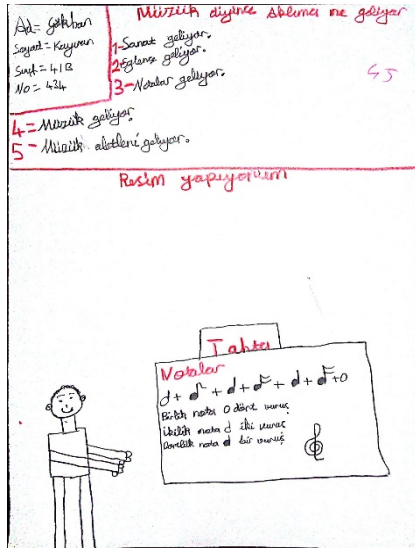 Ad= Gökhan
Soyad= Kayıran
Sınıf= 4/B
No= 434
Müzük diyince aklımıza ne geliyor
1-Sanat geliyor.
2-Eğlence geliyor.
3-Notalar geliyor.
45
4=Müzük geliyor.
5-Müzük aletleri geliyor.
Resim yapıyorum
Tahta
Notalar
Birlik nota o dört vuruş
ikilik nota d iki vuruş
Dörtlük nota d bir vuruş